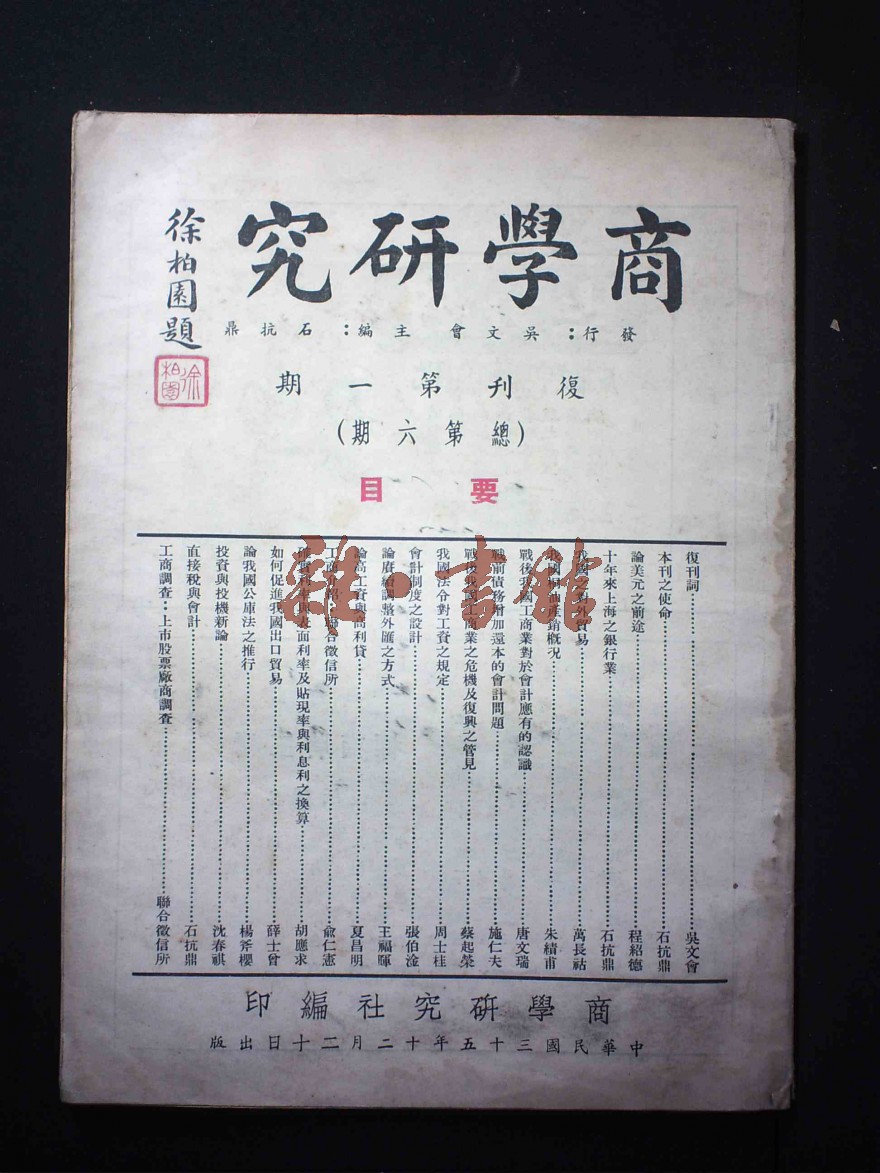 商學研究
徐柏園題
徐柏園
發行：吳文會 主編：石抗鼎
復刊第一期
(總第六期)
要目
復刊詞 吳文會
本刊之使命 石抗鼎
論美元之前途 程紹德
十年來上海之銀行業 石抗鼎
我國之對外貿易 萬長祜
我國桐油產銷概况 朱績甫
戰後我國工商業對於會計應有的認識 唐文瑞
戰前債務增加還本的會計問題 施仁夫
戰後我國工商業之危機及復興之管見 蔡起榮
我國法令對工資之規定 周士桂
會計制度之設計 張伯淦
論賡續調整外匯之方式 王福暉
論高工資與高利貸 夏昌明
工商介紹 聯合徵信所 俞仁憲
面利率及貼現率與利息利之換算 胡應求
如何促進我國出口貿易 薛士曾
論我國公庫法之推行 楊斧櫻
投資與投機新論 沈春祺
直接稅與會計 石抗鼎
工商調查：上市股票廠商調查 聯合徵信所
商學研究社編印
中華民國三十五年十二月二十日出版
雜·書館